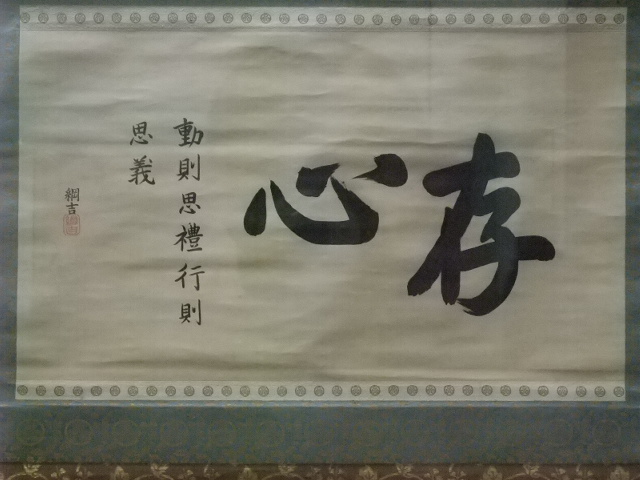 存心
動則思禮行則
思義
綱吉